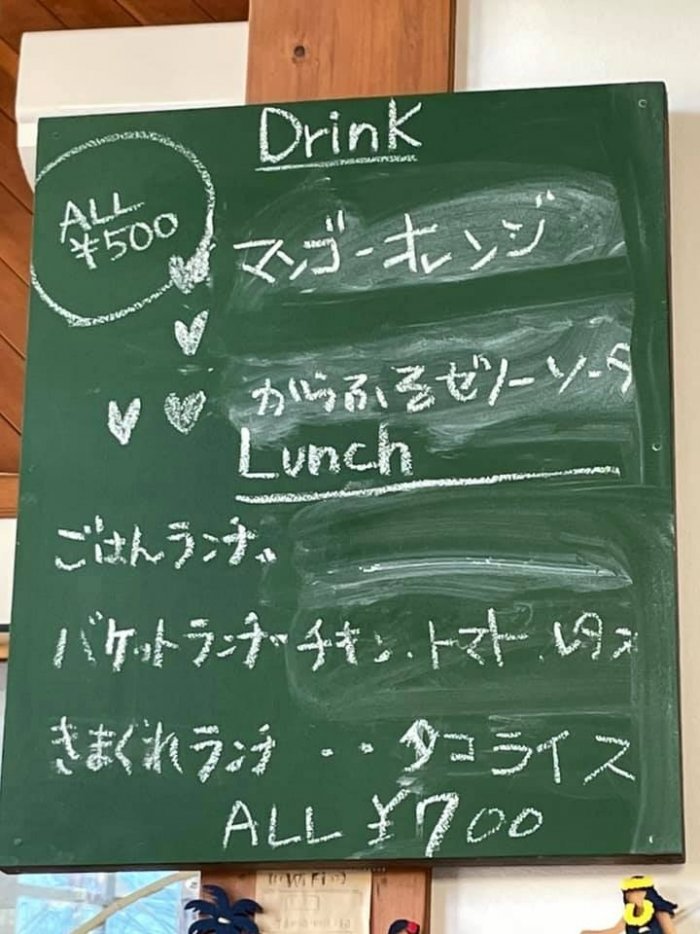 Drink
ALL
¥500
マンゴーオレンジ
からふるゼリーソーダ
Lunch
ごはんランチ
バケットランチ・チキン・トマト・レタス
きまぐれランチ・・タコライス
ALL ¥700